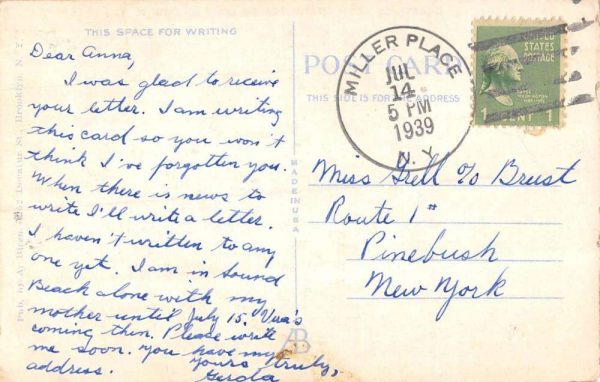 THIS SPACE FOR WRITING
Dear Anna,
I was glad to receive
your letter. I am writing
this card so you won't
think I've forgotten you.
When there is news to
write I'll write a letter.
I haven't written to any
one yet. I am in Sound
Beach alone with my
mother until July 15. Vera's
coming then. Please write
me soon. You have my
address. Yours truly,
Gerda
Brooklyn, N. Y.
MADE IN U.S.A.
AB
POST CARD
THIS SIDE IS FOR THE ADDRESS
MILLER PLACE
JUL
14
5 PM
1939
N. Y.
UNITED
STATES
POSTAGE
1 CENT 1
Miss Grell c/o Breist
Route 1
Pinebush
New York